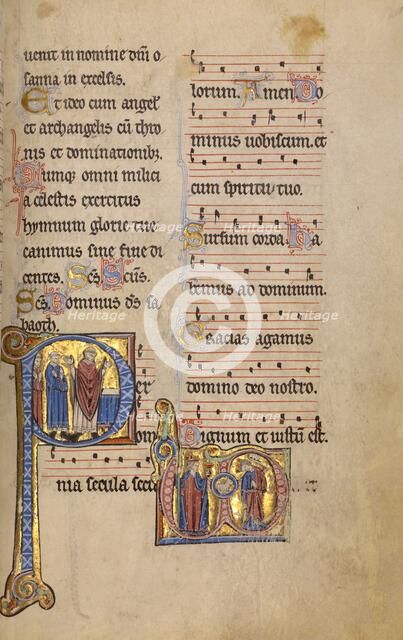 uenit in nomine dn̄i o
sanna in excelsis.
Et ideo cum angel'
et archangelis cū thro
nis et dominationibz
Cumqz omni milici
a celestis exercitus
hymnum glorie tue
canimus sine fine di
centes. Scs̄ Scūs.
Scs̄ Dominus ds̄ sa
baoth.
Per
om
nia secula secu
lorum. Amen Do
minus uobiscum. et
cum spiritu tuo.
Sursum corda ha
bemus ad dominum.
Gracias agamus
domino deo nostro.
Dignum et iustū est.
Heritage
Heritage
Heritage
Heritage
Heritage
Heritage
Heritage
Heritage